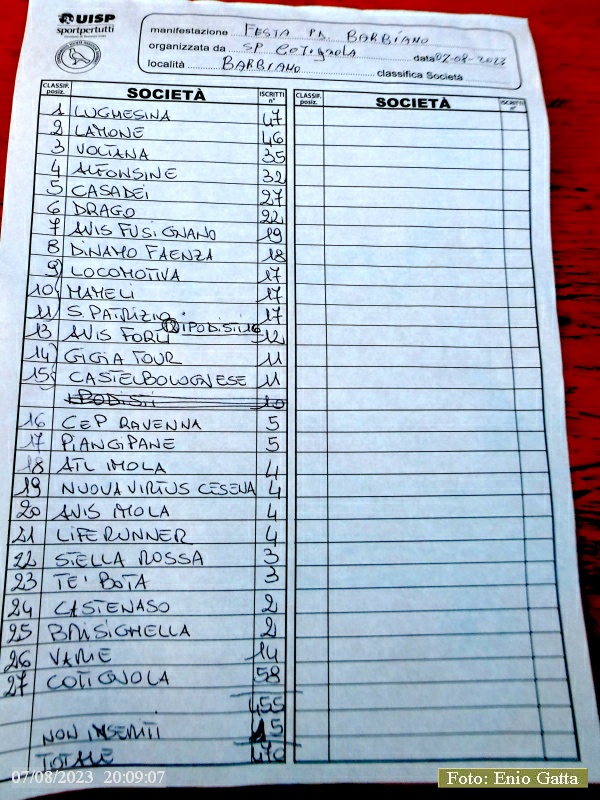 UISP
sportpertutti
manifestazione FESTA PD BARBIANO
organizzata da SP COTIGNOLA data 07-08-2023
località BARBIANO classifica Società
CLASSIF. posiz. SOCIETÀ ISCRITTI n° CLASSIF. posiz. SOCIETÀ ISCRITTI n°
1 LUGHESINA 47
2 LAMONE 46
3 VOLTANA 35
4 ALFONSINE 32
5 CASADEI 27
6 DRAGO 22
7 AVIS FUSIGNANO 19
8 DINAMO FAENZA 18
9 LOCOMOTIVA 17
10 MAMELI 17
11 S PATRIZIO 17
12 IPODISTI 16
13 AVIS FORLI 12
14 GIGIA TOUR 11
15 CASTELBOLOGNESE 11
IPODISTI 10
16 CEP RAVENNA 5
17 PIANGIPANE 5
18 ATL IMOLA 4
19 NUOVA VIRTUS CESENA 4
20 AVIS IMOLA 4
21 LIFE RUNNER 4
22 STELLA ROSSA 3
23 TE' BOTA 3
24 CASTENASO 2
25 BRISIGHELLA 2
26 VARIE 14
27 COTIGNOLA 58
455
NON INSERITI 15
TOTALE 470
07/08/2023 20:09:07
Foto: Enio Gatta